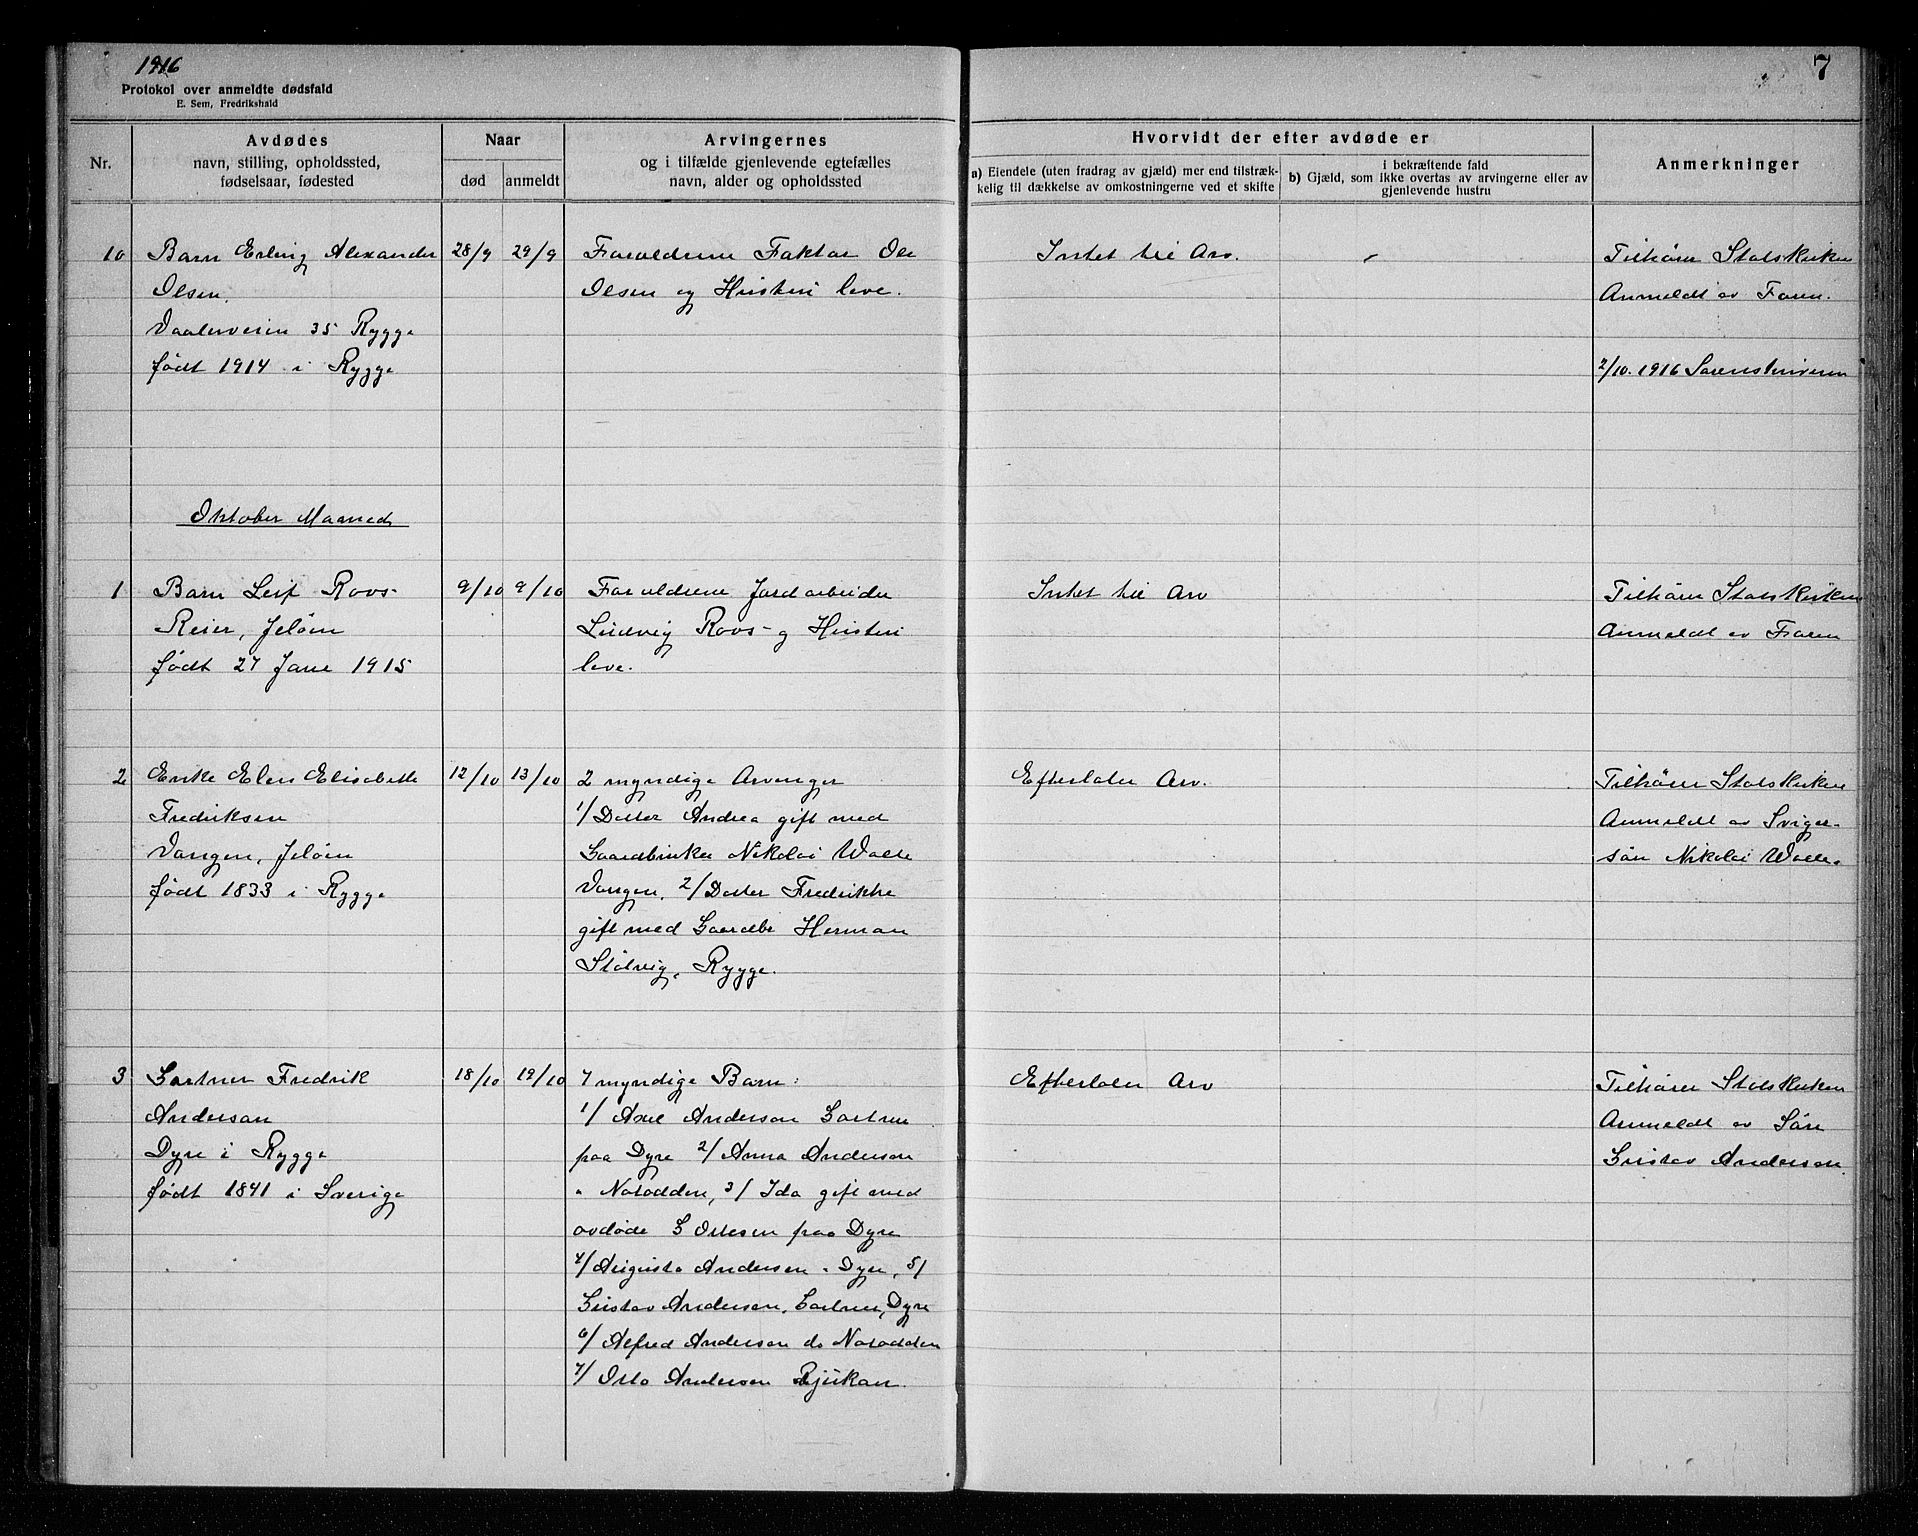 1916
7
Protokol over anmeldte dødsfald
E. Sem, Fredrikshald
Nr.
Avdødes
navn, stilling, opholdssted,
fødselsaar, fødested
Naar
død
anmeldt
Arvingernes
og i tilfælde gjenlevende egtefælles
navn, alder og opholdssted
Hvorvidt der efter avdøde er
a) Eiendele (uten fradrag av gjæld) mer end tilstræk-
kelig til dækkelse av omkostningerne ved et skifte
i bekræftende fald
b) Gjæld, som ikke overtas av arvingerne eller av
gjenlevende hustru
Anmerkninger
10
Barn Erling Alexander
Olsen.
Vaalerveien 35 Rygge
født 1914 i Rygge
28/9
29/9
Foreldrene Faktor Ole
Olsen og Hustru leve.
Intet til Arv.
Tilhører Statskirken
Anmeldt av Faren.
2/10. 1916 Sorenskriveren
Oktober Maaned
1
Barn Leif Roos-
Reier, Jeløen
født 27 Janu 1915
9/10
9/10
Foreldrene Jordarbeider
Ludvig Roos- og Hustru
leve.
Intet til Arv
Tilhører Statskirken
Anmeldt av Faren
2
Enke Elen Elisabeth
Fredriksen
Vangen, Jeløen
født 1833 i Rygge
12/10
13/10
2 myndige Arvinger
1/ Datter Andrea gift med
Gaardbruker Nikolai Walle
Vangen, 2/ Datter Fredrikke
gift med Gaardbr Herman
Støtvig, Rygge.
Efterlater Arv.
Tilhører Statskirken
Anmeldt av Sviger-
søn Nikolai Walle.
3
Gartner Fredrik
Anderson
Dyre i Rygge
født 1841 i Sverige
18/10
19/10
7 myndige Barn:
1/ Axel Anderson Gartner
paa Dyre 2/ Anna Anderson
" Notodden, 3/ Ida gift med
avdøde G Ottesen paa Dyre
4/ Augusta Andersen " Dyre, 5/
Gustav Andersen, Gartner, Dyre
6/ Alfred Andersen do Notodden
7/ Otto Andersen Rjukan.
Efterlater Arv
Tilhører Statskirken
Anmeldt av Søn
Gustav Andersen.